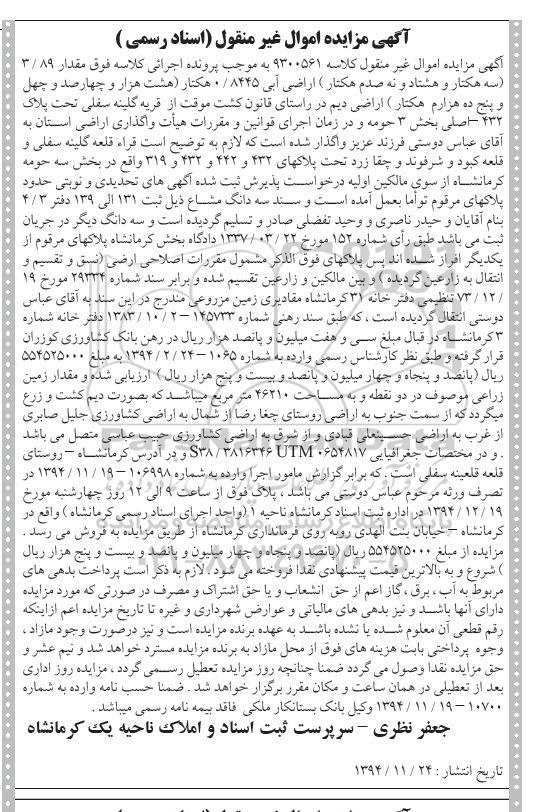 آگهی مزایده اموال غیر منقول (اسناد رسمی )
آگهی مزایده اموال غیر منقول کلاسه ۹۳۰۰۵۶۱ به موجب پرونده اجرائی کلاسه فوق مقدار ۸۹ / ۳
(سه هکتار و هشتاد و نه صدم هکتار ) اراضی آبی و ۸۴۴۵ / ۰ هکتار (هشت هزار و چهارصد و چهل
و پنج ده هزارم هکتار ) اراضی دیم در راستای قانون کشت موقت از قریه گلینه سفلی تحت پلاک
۴۳۲ –اصلی بخش ۳ حومه و در زمان اجرای قوانین و مقررات هیأت واگذاری اراضی استان به
آقای عباس دوستی فرزند عزیز واگذار شده است که لازم به توضیح است قراء قلعه گلینه سفلی و
قلعه کبود و شرفوند و چقا زرد تحت پلاکهای ۴۳۲ و ۴۴۲ و ۴۳۲ و ۳۱۹ واقع در بخش سه حومه
کرمانشاه از سوی مالکین اولیه درخواست پذیرش ثبت شده آگهی های تحدیدی و نوبتی حدود
پلاکهای مرقوم توأما بعمل آمده است و سند سه دانگ مشاع ذیل ثبت ۱۳۱ الی ۱۳۹ دفتر ۳ / ۴
بنام آقایان و حیدر ناصری و وحید تفضلی صادر و تسلیم گردیده است و سه دانگ دیگر در جریان
ثبت می باشد طبق رأی شماره ۱۵۲ مورخ ۲۲ / ۰۳ / ۱۳۳۷ دادگاه بخش کرمانشاه پلاکهای مرقوم از
یکدیگر افراز شده اند پس پلاکهای فوق الذکر مشمول مقررات اصلاحی ارضی (نسق و تقسیم و
انتقال به زارعین گردیده ) و بین مالکین و زارعین تقسیم شده و برابر سند شماره ۲۹۳۳۴ مورخ ۱۹
/ ۱۲ / ۷۳ تنظیمی دفتر خانه ۳۱ کرمانشاه مقادیری زمین مزروعی مندرج در این سند به آقای عباس
دوستی انتقال گردیده است ، که طبق سند رهنی شماره ۱۴۵۷۳۳ – ۲ / ۱۰ / ۱۳۸۳ دفتر خانه شماره
۳ کرمانشاه در قبال مبلغ سی و هفت میلیون و پانصد هزار ریال در رهن بانک کشاورزی کوزران
قرار گرفته و طبق نظر کارشناس رسمی وارده به شماره ۱۰۶۵ – ۲۴ / ۲ / ۱۳۹۴ به مبلغ ۵۵۴۵۲۵۰۰۰
ریال (پانصد و پنجاه و چهار میلیون و پانصد و بیست و پنج هزار ریال ) ارزیابی شده و مقدار زمین
زراعی موصوف در دو نقطه و به مساحت ۴۶۲۱۰ متر مربع میباشد که بصورت دیم کشت و زرع
میگردد که از سمت جنوب به اراضی روستای چغا رضا از شمال به اراضی کشاورزی جلیل صابری
از غرب به اراضی حسینعلی قبادی و از شرق به اراضی کشاورزی حبیب عباسی متصل می باشد
. و در مختصات جغرافیایی S۳۸ / ۳۸۱۶۳۴۶ UTM ۰۶۵۴۸۱۷ و در آدرس کرمانشاه – روستای
قلعه قلعینه سفلی است . که برابر گزارش مامور اجرا وارده به شماره ۱۰۶۹۹۸ – ۱۹ / ۱۱ / ۱۳۹۴ در
تصرف ورثه مرحوم عباس دوستی می باشد ، پلاک فوق از ساعت ۹ الی ۱۲ روز چهارشنبه مورخ
۱۹ / ۱۲ / ۱۳۹۴ در اداره ثبت اسناد کرمانشاه ناحیه ۱ (واحد اجرای اسناد رسمی کرمانشاه ) واقع در
کرمانشاه – خیابان بنت الهدی روبه روی فرمانداری کرمانشاه از طریق مزایده به فروش می رسد .
مزایده از مبلغ ۵۵۴۵۲۵۰۰۰ ریال (پانصد و پنجاه و چهار میلیون و پانصد و بیست و پنج هزار ریال
) شروع و به بالاترین قیمت پیشنهادی نقدا فروخته می شود . لازم به ذکر است پرداخت بدهی های
مربوط به آب ، برق ،گاز اعم از حق انشعاب و یا حق اشتراک و مصرف در صورتی که مورد مزایده
دارای آنها باشد و نیز بدهی های مالیاتی و عوارض شهرداری و غیره تا تاریخ مزایده اعم ازاینکه
رقم قطعی آن معلوم شده یا نشده باشد به عهده برنده مزایده است و نیز درصورت وجود مازاد ،
وجوه پرداختی بابت هزینه های فوق از محل مازاد به برنده مزایده مسترد خواهد شد و نیم عشر و
حق مزایده نقدا وصول می گردد ضمنا چنانچه روز مزایده تعطیل رسمی گردد ، مزایده روز اداری
بعد از تعطیلی در همان ساعت و مکان مقرر برگزار خواهد شد . ضمنا حسب نامه وارده به شماره
۱۰۷۰۰ – ۱۹ / ۱۱ / ۱۳۹۴ وکیل بانک بستانکار ملکی فاقد بیمه نامه رسمی میباشد .
جعفر نظری – سرپرست ثبت اسناد و املاک ناحیه یک کرمانشاه
تاریخ انتشار : ۲۴ / ۱۱ / ۱۳۹۴